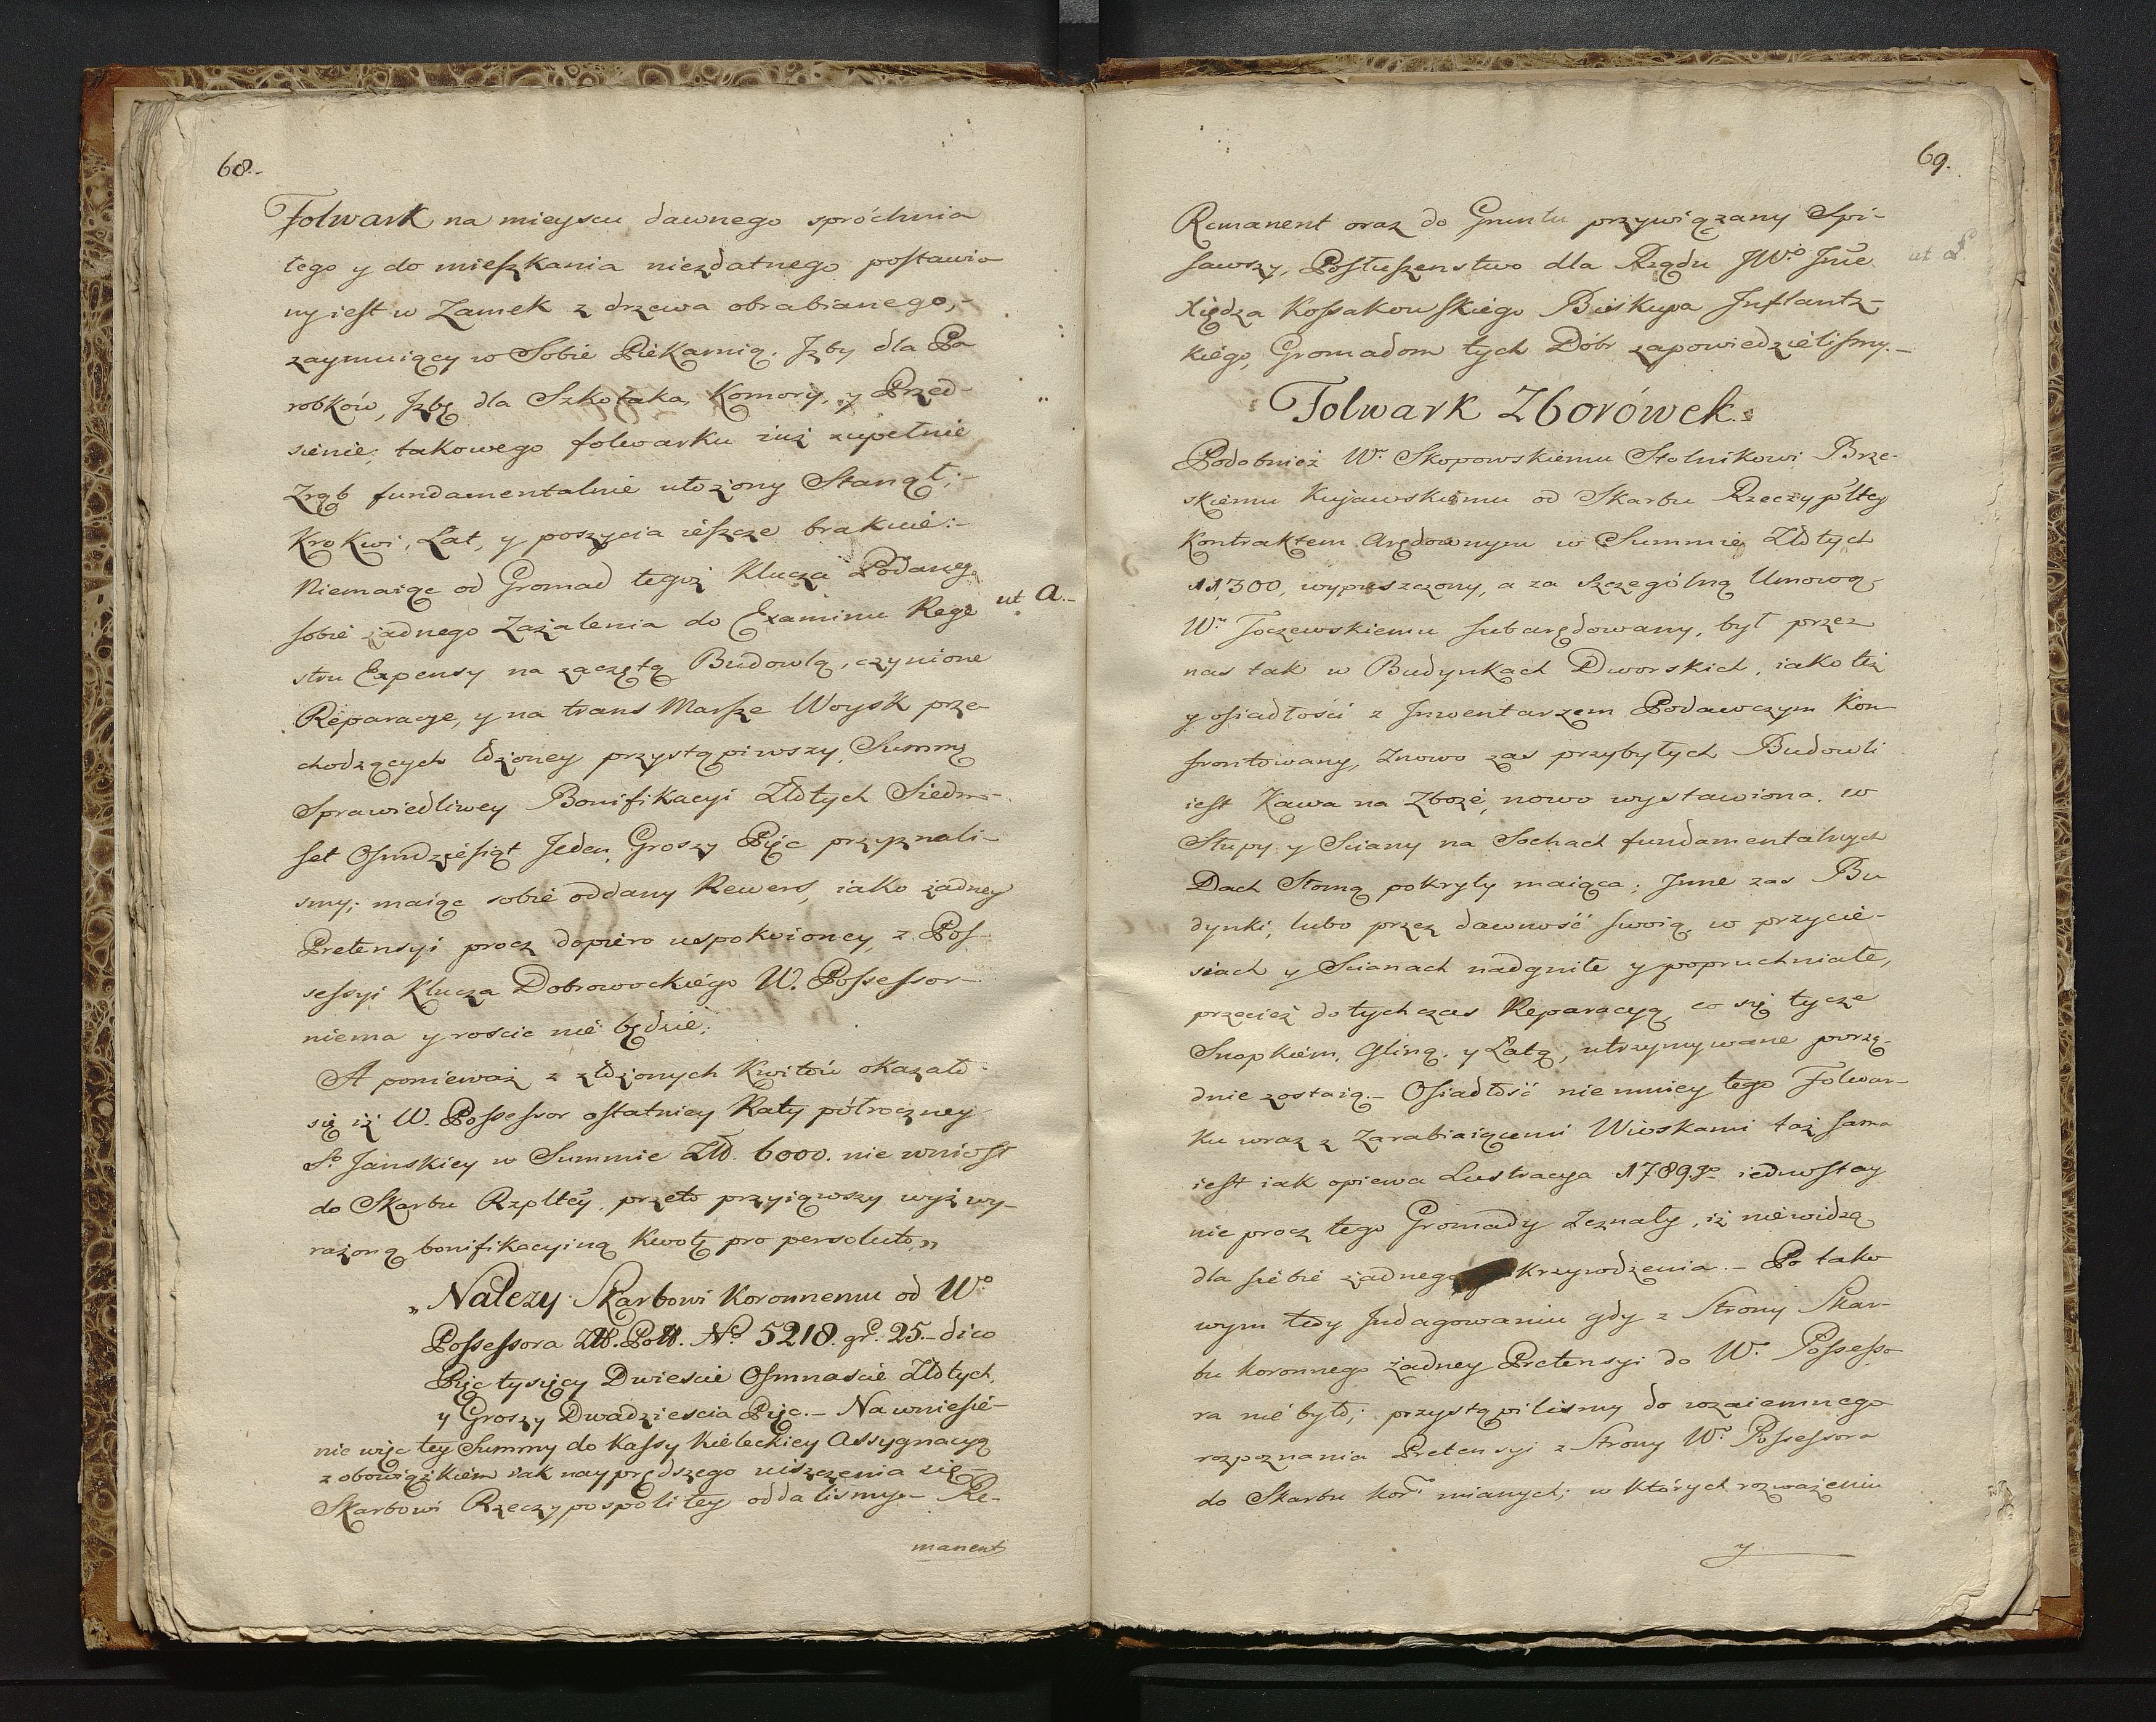 68.-
Folwark na mieyscu dawnego spróchnia
tego y do mieszkania niezdatnego postawio
ny iest w Zamek z drzewa obrabianego,-
zaymuiący w Sobie Piekarnią. Jzby dla Pa
robków, Jzbę dla Szkolaka, Komory, y Przed-
sienie; takowego folwarku iuż zupełnie
Zrąb fundamentalnie ułożony Stanął;-
Krokwi, Łat, y poszycia ieszcze brakuie:-
Niemaiąc od Gromad tegoż Klucza Podaneg
sobie żadnego Zażalenia do Examinu Rege
ut A.-
stru Expensy na zaczętą Budowlą, czynione
Reparacye, y na trans Marsze Woysk prze
chodzących łożoney przystąpiwszy, Summę
Sprawiedliwey Bonifikacyi Złotych Siedm-
set Osmdziesiąt Jeden, Groszy Pięc przyznali-
smy; maiąc sobie oddany Rewers, iako żadney
Pretensyi procz dopiero uspokoioney, z Pos-
sessyi Klucza Dobrowockiego W. Possessor-
niema y roscic nie będzie.
A ponieważ z złożonych Kwitów okazało
się iż W. Possessor ostatniey Raty półroczney
So Janskiey w Summie Zło. 6000. nie wniosł
do Skarbu Rzpltey, przeto przyiąwszy wyż wy-
rażoną bonifikacyiną Kwotę pro persoluto„
„Należy Skarbowi Koronnemu od Wo
Possessora Zł. Pol. No 5218. gr. 25.- dico
Pięc tysięcy Dwiescie Osmnascie Złotych,
y Groszy Dwadziescia Pięc.- Na wniesie-
nie więc tey Summy do Kassy Kieleckiey Assygnacyą
z obowiązkiem iak nayprędszego uiszczenia się
Skarbowi Rzeczypospolitey oddalismy.- Re-
manent
69.
Remanent oraz do Gruntu przywiązany Spi-
sawszy, Posłuszenstwo dla Rządu JWo Jme
ut
Xiędza Kossakowskiego Biskupa Jnflantz-
kiego, Gromadom tych Dóbr zapowiedzielismy.-
Folwark Zborówek.
Podobnież Wu Skopowskiemu Stolnikowi Brze-
skiemu Kujawskiemu od Skarbu Rzeczyplltey
Kontraktem Arędownym w Summie Złotych
11,300, wypuszczony, a za szczególną Umową
Wu Toczewskiemu subarędowany, był przez
nas tak w Budynkach Dworskich, iako też
y osiadłości z Jnwentarzem Podawczym Kon-
frontowany, Znowo zas przybyłych Budowli
iest Kawa na Zboże, nowo wystawiona, w
Słupy y Sciany na Sochach fundamentalnych
Dach Słomą pokryty maiąca; Jnne zas Bu
dynki, lubo przez dawność swoią, w przycie-
siach y Scianach nadgniłe y popruchniałe,
przecież dotychczas Reparacyą, co się tycze
Snopkiem, Gliną, y Łatą, utrzymywane porzą-
dnie zostaią.- Osiadłość niemniey tego Folwar-
ku wraz z Zarabiaiącemi Wioskami taż sama
iest iak opiewa Lustracya 1789go iednostay
nie procz tego Gromady Zeznały, iż niewidzą
dla siebie żadnego Krzywdzenia.- Po tako
wym tedy Jndagowaniu gdy z Strony Skar-
bu Koronnego żadney Pretensyi do Wo Possesso
ra nie było; przystąpilismy do wzaiemnego
rozpoznania Pretensyi z Strony Wo Possessora
do Skarbu Kor. mianych; w których rozważeniu
y